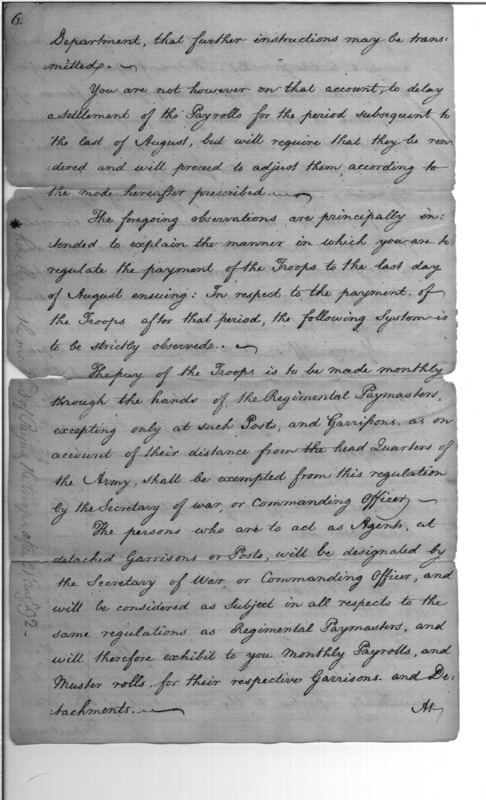 6.
Department, that further instructions may be trans:
mitted.
You are not however on that account, to delay
a settlement of the Payrolls for the period subsequent to
the last of August, but will require that they be ren
:dered and will proceed to adjust them, according to
the mode hereafter prescribed.
The foregoing observations are principally in:
tended to explain the manner in which you are to
regulate the payment of the Troops to the last day
of August ensuing: In respect to the payment of
the Troops after that period, the following System is
to be strictly observed.
The pay of the Troops is to be made monthly
through the hands of the Regimental Paymasters,
excepting only at such Posts, and Garrisons, as on
account of their distance from the head Quarters of
the Army, shall be exempted from this regulation
by the Secretary of war, or Commanding Officer,
The persons who are to act as Agents, at
detached Garrisons or Posts, will be designated by
the Secretary of War or Commanding Officer, and
will be considered as Subject in all respects to the
same regulations as Regimental Paymasters, and
will therefore exhibit to you Monthly Payrolls, and
Muster rolls, for their respective Garrisons and De:
tachments.
At